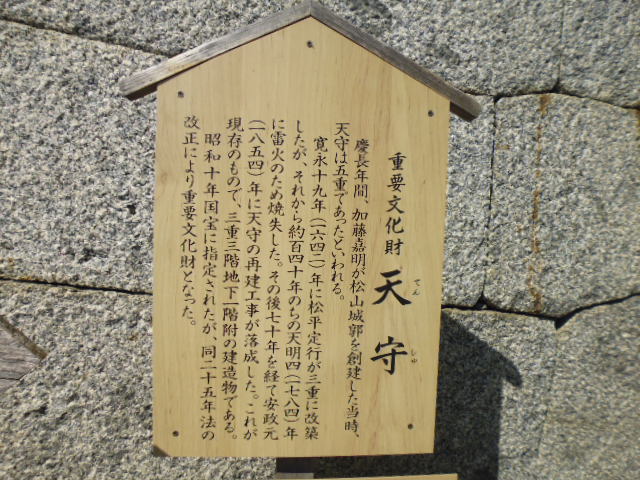 重要文化財 天守
てんしゅ
慶長年間、加藤嘉明が松山城郭を創建した当時、
天守は五重であったといわれる。
寛永十九年(一六四二)年に松平定行が三重に改築
したが、それから約百四十年のちの天明四(一七八四)年
に雷火のため焼失した。その後七十年を経て安政元
(一八五四)年に天守の再建工事が落成した。これが
現存のもので、三重三階地下一階附の建造物である。
昭和十年国宝に指定されたが、同二十五年法の
改正により重要文化財となった。